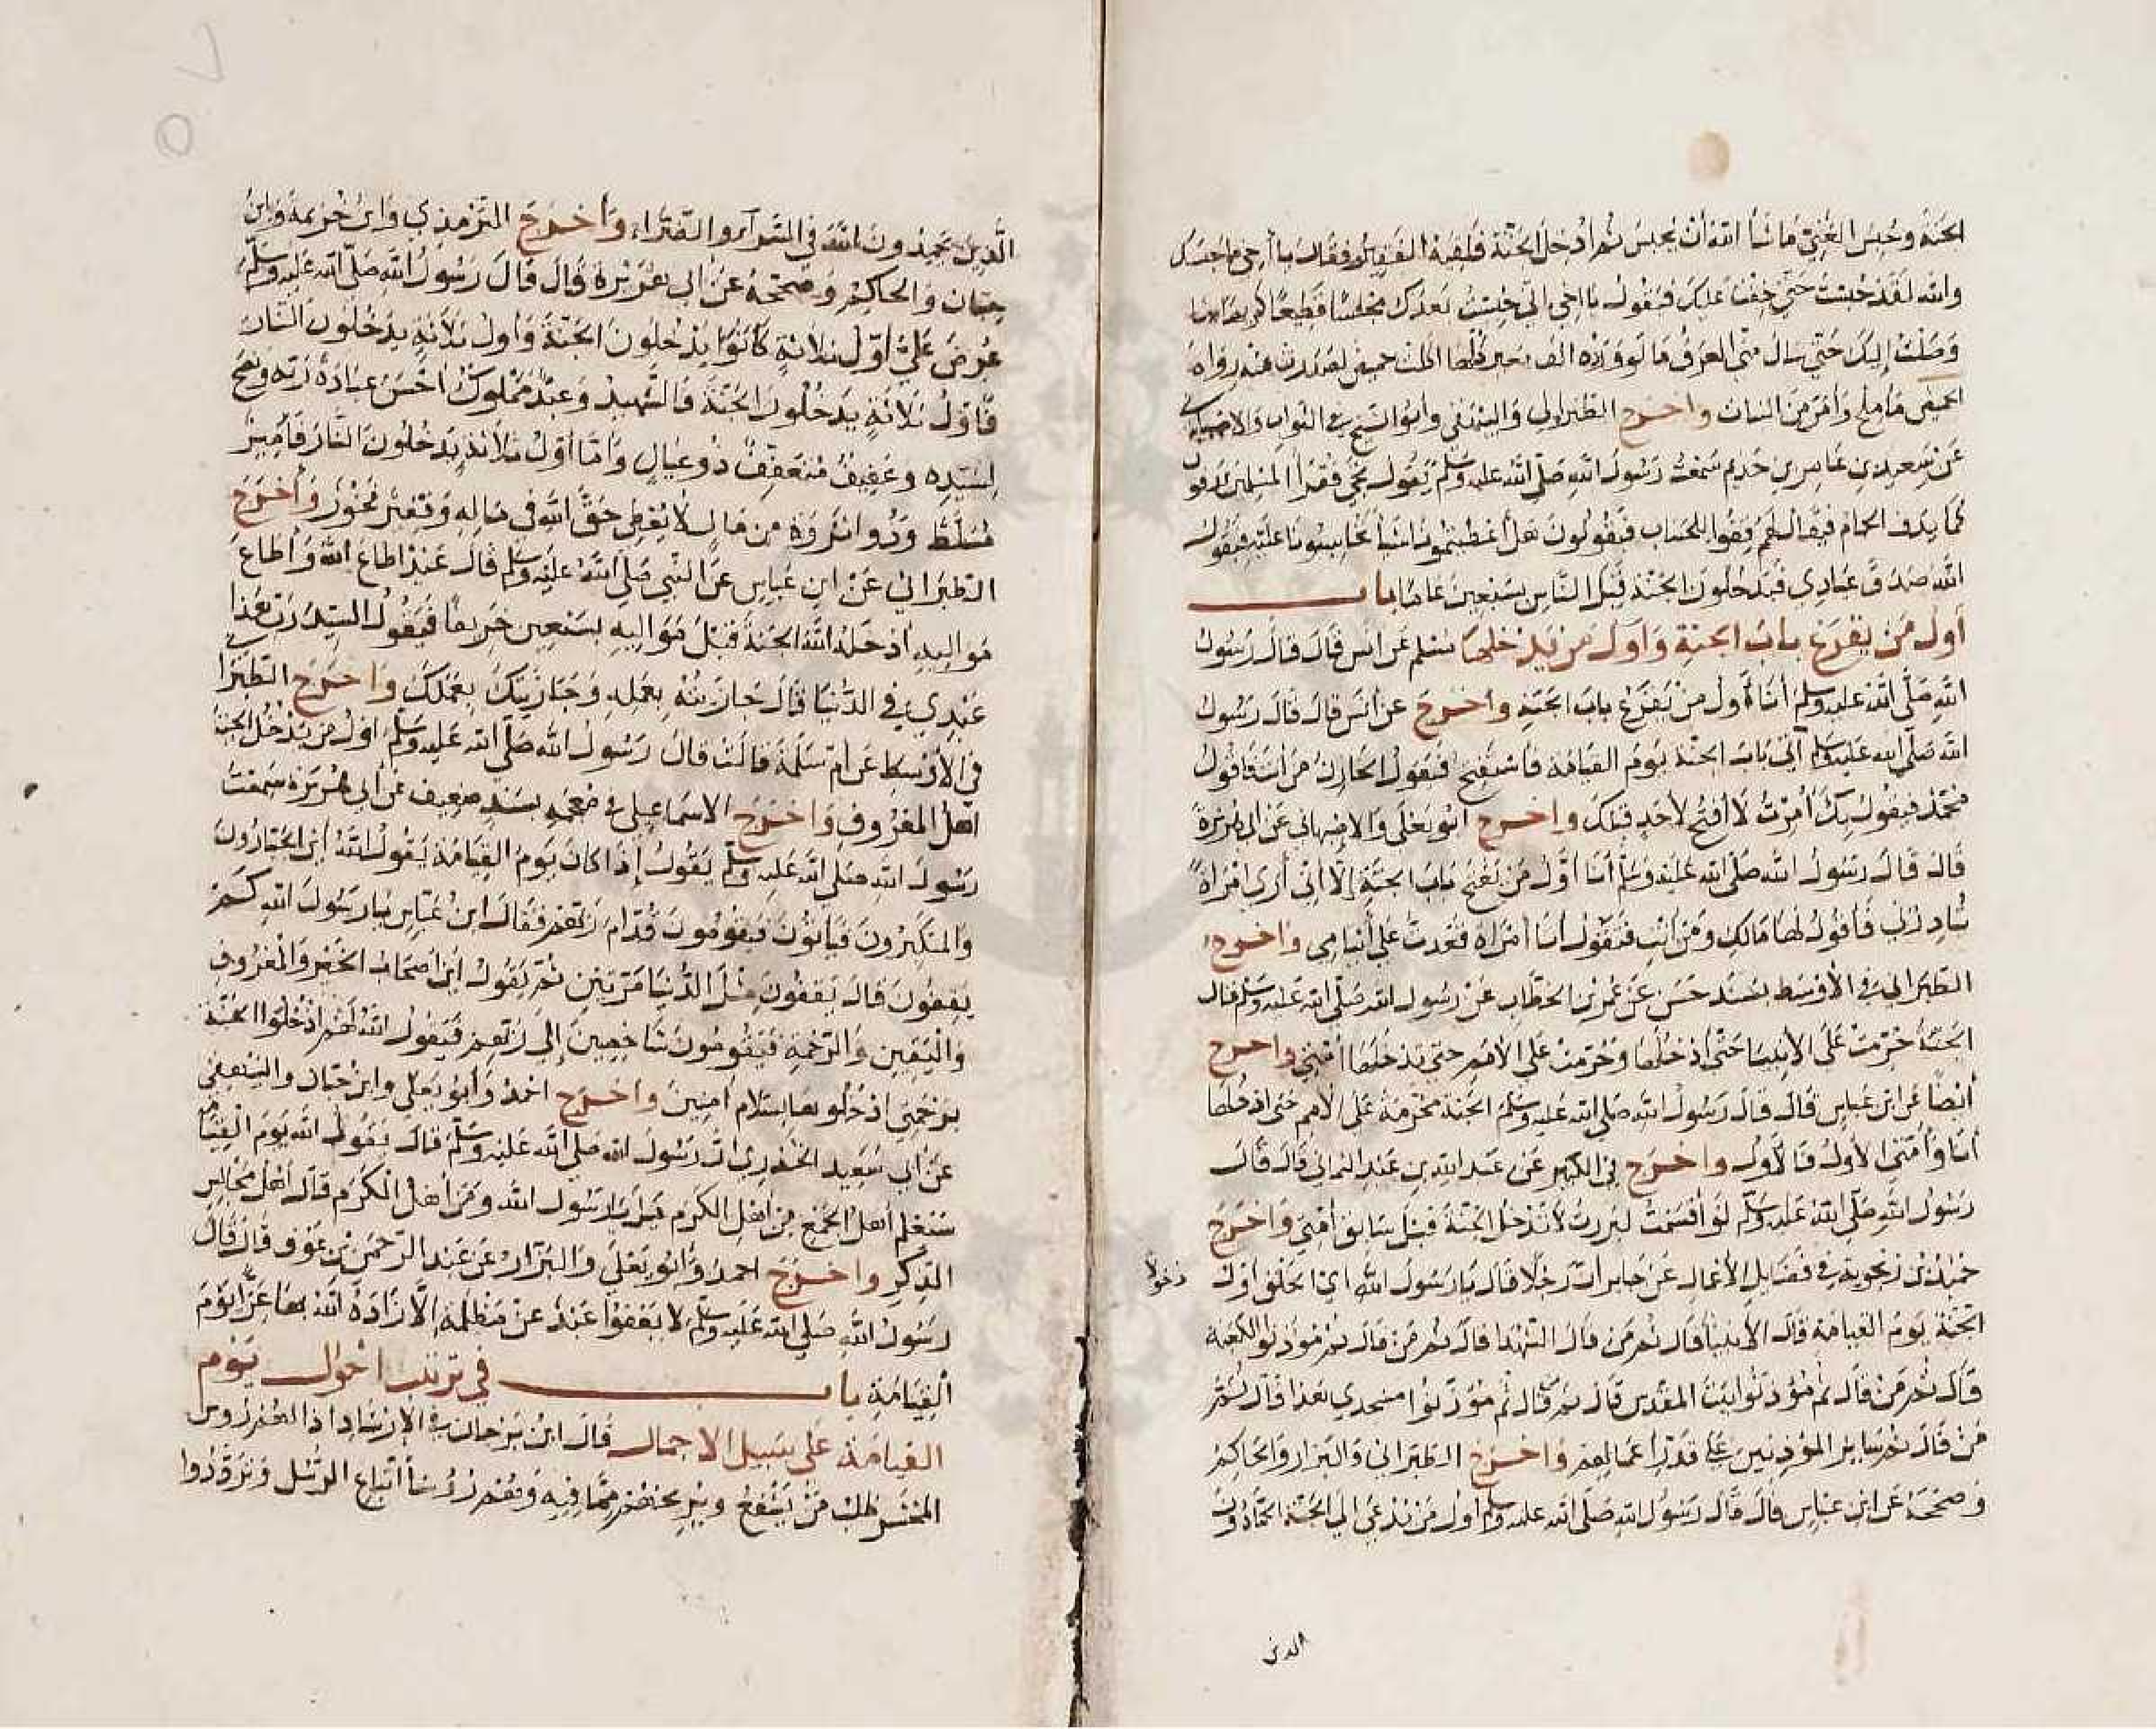 الجنة وحبس الغني ما شا الله أن يحبس ثم ادخل الجنة فلقيه الفقير فقال يا أخي ما حبسك
والله لقد حبست حتى خفت عليك فيقول يا اخي اني حبست بعدك محبسا فظيعا كريها ما
وصلت إليك حتى سال مني العرق ما لو ورده الف بعير كلها اكلت حمض لصدرت عنه رواه
الحمض ما ملح وأمر من النبات واخرج الطبراني والبيهقي وأبو الشيخ في الثواب والاصبهاني
عن سعيد بن عامر بن حذيم سمعت رسول الله صلى الله عليه وسلم يقول يجي فقرا المسلمين يدفون
كما يدف الحمام فيقال لهم قفوا للحساب فيقولون هل أعطيتمونا شيأ تحاسبونا عليه فيقول
الله صدق عبادي فيدخلون الجنة قبل الناس بسبعين عاما باب
أول من يقرع باب الجنة واول من يدخلها مسلم عن انس قال قال رسول
الله صلى الله عليه وسلم أنا أول من يقرع باب الجنة واخرج عن أنس قال قال رسول
الله صلى الله عليه وسلم آتي باب الجنة يوم القيامة فاستفتح فيقول الخازن من أنت فاقول
محمد فيقول بك أمرت لا افتح لأحد قبلك واخرج ابو يعلى والاصبهاني عن ابي هريرة
قال قال رسول الله صلى الله عليه وسلم أنا أول من يفتح باب الجنة إلا أني أرى امرأة
تبادرني فأقول لها مالك ومن انت فتقول أنا أمراة قعدت على أيتامي واخرج
الطبراني في الأوسط بسند حسن عن عمر بن الخطاب عن رسول الله صلى الله عليه وسلم قال
الجنة حرمت على الأنبيا حتى أدخلها وحرمت على الأمم حتى تدخلها أمتي واخرج
أيضا عن ابن عباس قال قال رسول الله صلى الله عليه وسلم الجنة محرمة على الأمم حتى ادخلها
أنا وأمتي الأول فالأول واخرج في الكبير عن عبد الله بن عبد الثمالي قال قال
رسول الله صلى الله عليه وسلم لو أقسمت لبررت لا تدخل الجنة قبل سابق أمتي واخرج
حميد بن زنجويه في فضايل الأعمال عن جابر أن رجلا قال يا رسول الله اي الخلق أول
دخولا
الجنة يوم القيامة قال الأنبيا قال ثم من قال الشهدا قال ثم من قال ثم مؤذنو الكعبة
قال ثم من قال ثم مؤذنوا بيت المقدس قال ثم من قال ثم مؤذنوا مسجدي هذا قال ثم
من قال ثم ساير المؤذنين على قدر أعمالهم واخرج الطبراني والبزار والحاكم
وصححه عن ابن عباس قال قال رسول الله صلى الله عليه وسلم اول من يدعى الى الجنة الحمادون
الذين
٥٧
الذين يحمدون الله في السرآء والضراء واخرج الترمذي وابن خزيمة وابن
حبان والحاكم وصححه عن ابي هريرة قال قال رسول الله صلى الله عليه وسلم
عرض علي اول ثلاثة يدخلون الجنة واول ثلاثة يدخلون النار
فأول ثلاثة يدخلون الجنة فالشهيد وعبد مملوك احسن عبادة ربه ونصح
لسيده وعفيف متعفف ذو عيال وأما أول ثلاثة يدخلون النار فأمير
مسلط وذو ثروة من مال لا يعطي حق الله في ماله وفقير فخور وأخرج
الطبراني عن ابن عباس عن النبي صلى الله عليه وسلم قال عبد اطاع الله وأطاع
مواليه أدخله الله الجنة قبل مواليه بسبعين خريفا فيقول السيد رب هذا
عبدي في الدنيا قال جازيته بعمله وجازيتك بعملك واخرج الطبراني
في الأوسط عن ام سلمة قالت قال رسول الله صلى الله عليه وسلم اول من يدخل الجنة
أهل المعروف واخرج الاسماعيلي في معجمه بسند ضعيف عن ابي هريرة سمعت
رسول الله صلى الله عليه وسلم يقول إذا كان يوم القيامة يقول الله أين الجبارون
والمتكبرون فيأتون فيقومون قدام ربهم فقال ابن عباس يا رسول الله كم
يقفون قال يقفون مثل الدنيا مرتين ثم يقول اين أصحاب الخير والمعروف
واليقين والرحمة فيقومون شاخصين إلى ربهم فيقول الله لهم ادخلوا الجنة
برحمتي ادخلوها بسلام امنين واخرج احمد وأبو يعلى وابن حبان والبيهقي
عن ابي سعيد الخدري ان رسول الله صلى الله عليه وسلم قال يقول الله يوم القيامة
سيعلم أهل الجمع من اهل الكرم قيل يا رسول الله ومن أهل الكرم قال أهل مجالس
الذكر واخرج احمد وأبو يعلى والبزار عن عبد الرحمن بن عوف قال قال
رسول الله صلى الله عليه وسلم لا يعفوا عبد عن مظلمة إلا زاده الله بها عزا يوم
القيامة باب في ترتيب احوال يوم
القيامة على سبيل الاجمال قال ابن برجان في الإرشاد اذا
المحشر طلب من يشفع ويريحهم مما فيه وهم رؤسأ أتباع الرسل